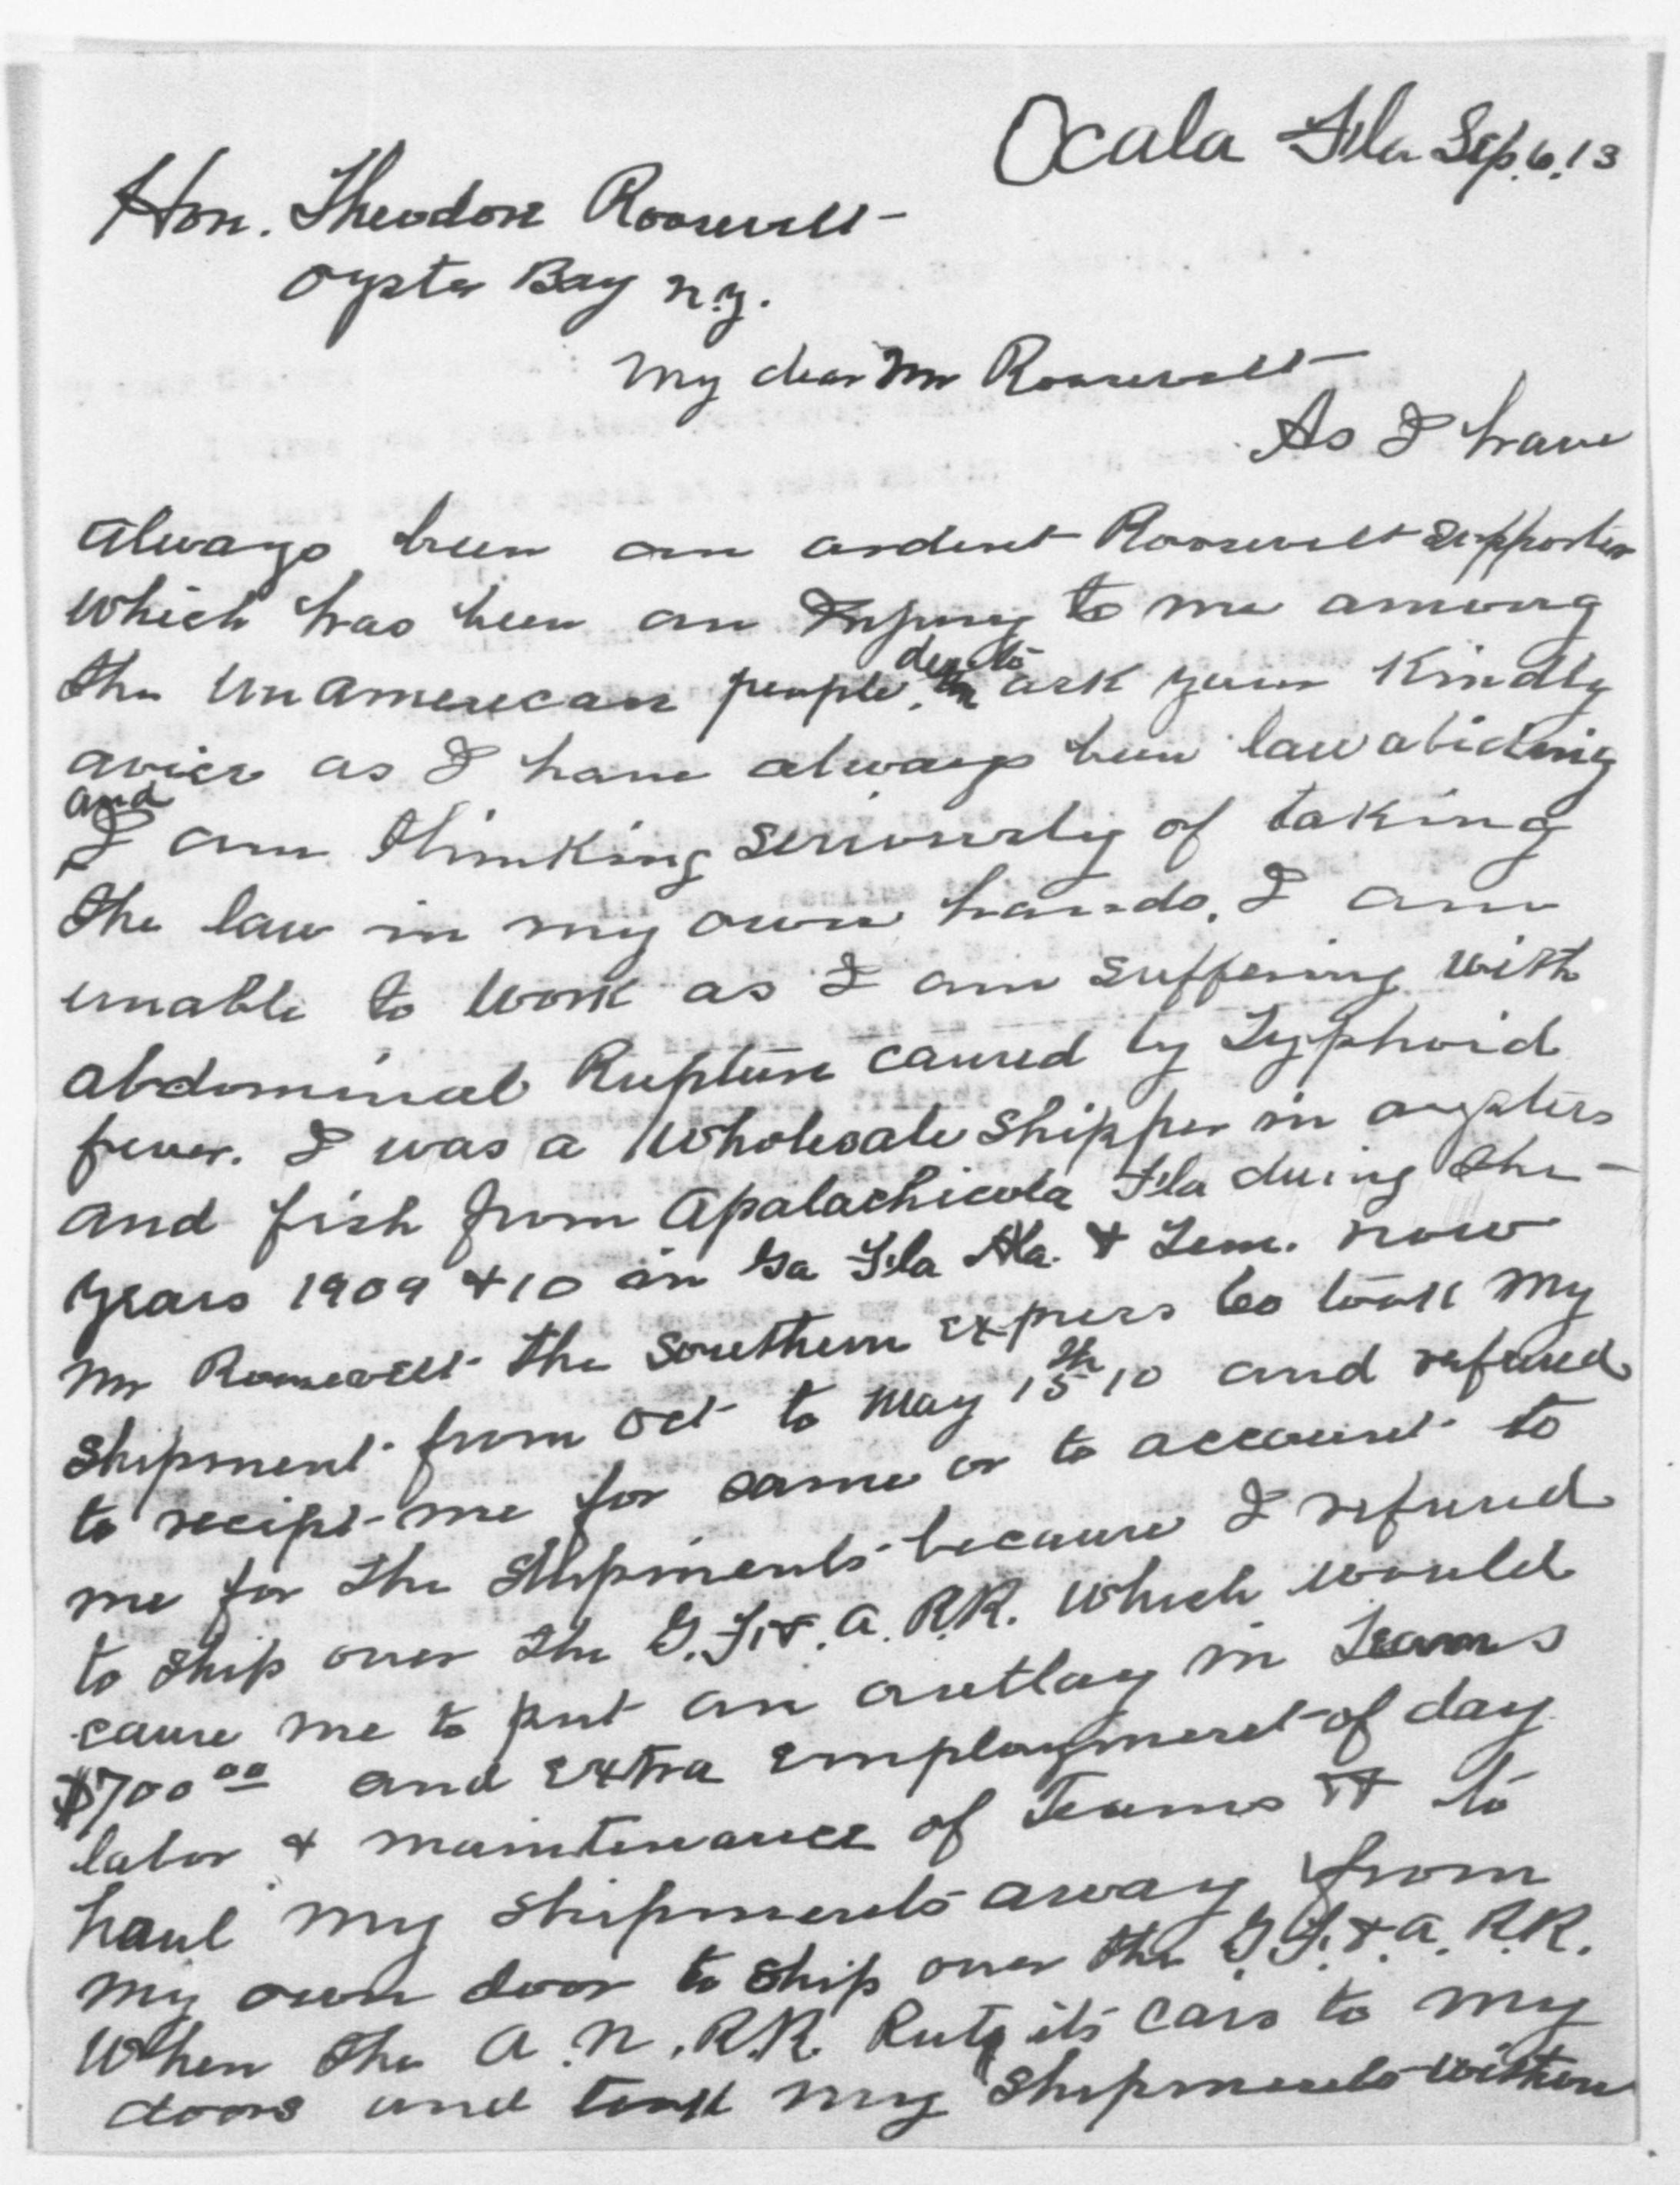 Ocala Fla Sep. 6. 13
Hon. Theodore Roosevelt
Oyster Bay N.Y.
My dear Mr Roosevelt
As I have
always been an ardent Roosevelt supporter
which has been an Injury to me among
the unamerecan people, desire to ask your kindly
avice as I have always been law abiding
and
I am thinking seriously of taking
the law in my own hands. I am
unable to work as I am suffering with
abdominal Rupture caused by Typhoid
fever. I was a wholesale shipper in oysters
and fish from Apalachicola Fla duing the
years 1909 & 10 in Ga Fla Ala. & Tenn. now
Mr Roosevelt the southern express Co took my
shipment from Oct to May 15th 10 and refused
to recipt me for same or to account to
me for the shipments because I refused
to ship over the G. F. & . A. R.R. which would
cause me to put an outlay in Teams
$700 00 and extra employment of day
labor & maintenance of Teams to
haul my shipments away from
my own door to ship over the G. F. & . A. R.R.
when the A. N. R.R. Puts its cars to my
doors and took my shipments within